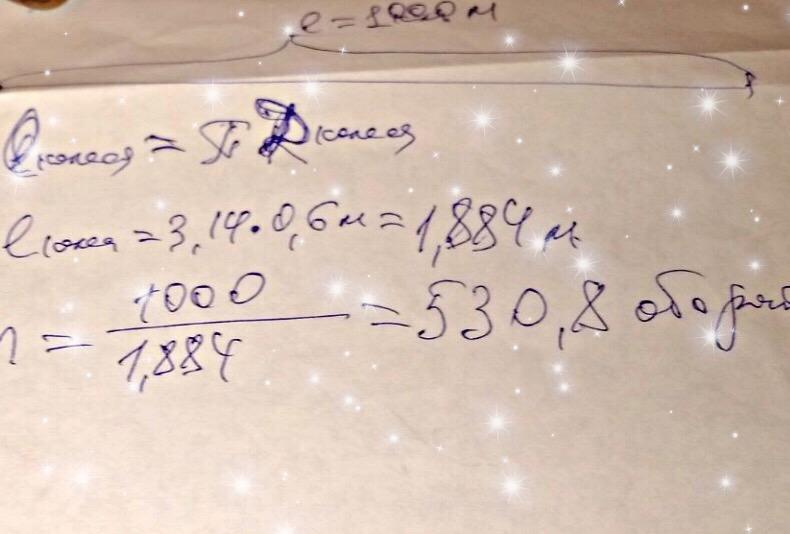 l = 1000 м
l колеса = π D колеса
l колеса = 3,14 · 0,6 м = 1,884 м
n = 1000 / 1,884 = 530,8 оборот